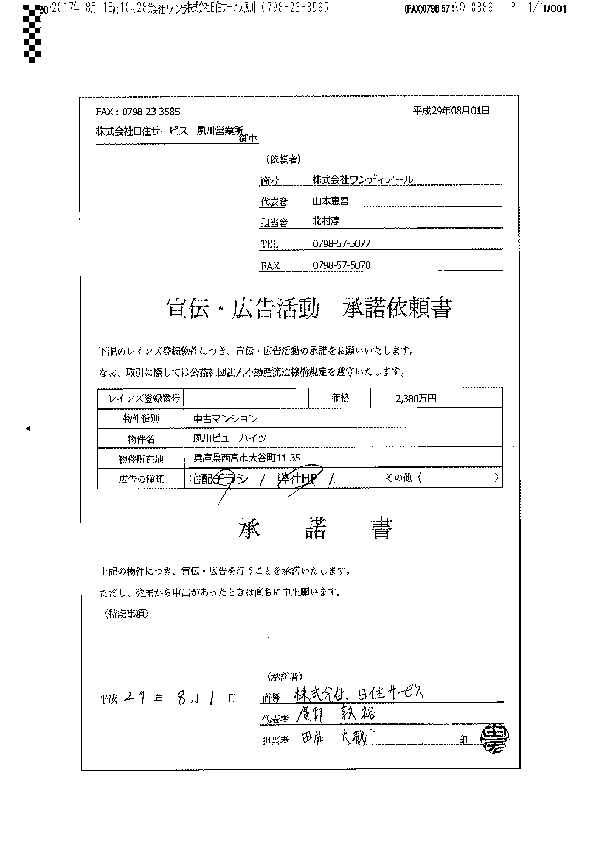 FAX：0798 23 3585
平成29年08月01日
株式会社日住サービス 夙川営業所 御中
（依頼者）
商号 株式会社ワンディアール
代表者
担当者 北村
TEL 0798-57-5077
FAX 0798-57-5070
宣伝・広告活動 承諾依頼書
下記のレインズ登録物件につき、宣伝・広告活動の承諾をお願いいたします。
なお、取引に際しては公益社団法人不動産流通機構規定を遵守いたします。
レインズ登録番号 価格 2,380万円
物件種別 中古マンション
物件名 夙川ビューハイツ
物件所在地 兵庫県西宮市大谷町11-35
広告の種類 宅配チラシ / 弊社HP / その他（ ）
承 諾 書
上記の物件につき、宣伝・広告を行うことを承諾いたします。
ただし、売主から申出があったときは直ちに中止願います。
（特記事項）
平成 29 年 8 月 1 日
（承諾者）
商号 株式会社 日住サービス
代表者
担当者 印